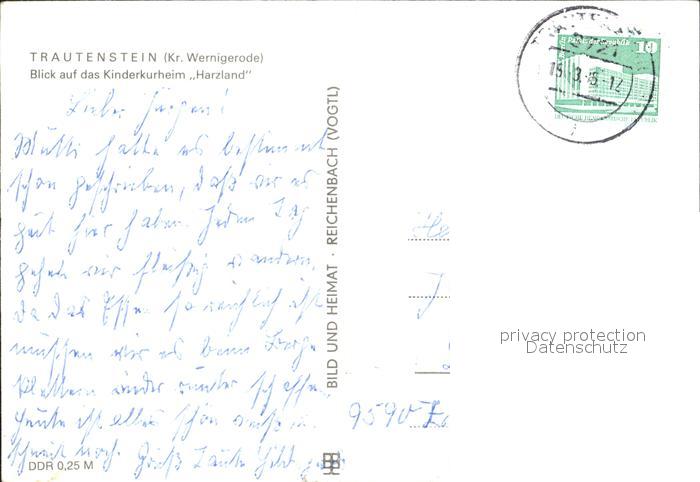 TRAUTENSTEIN (Kr. Wernigerode)
Blick auf das Kinderkurheim „Harzland"
Lieber Jürgen!
Mutti hatte es bestimmt
schon geschrieben, daß wir es
gut hier haben. Jeden Tag
gehen wir fleißig wandern,
da das Essen so reichlich ist
müssen wir es beim Berge
klettern wieder runter schaffen.
Heute ist alles schon
schneit noch. Gruß Tante Hilde
DDR 0,25 M
BILD UND HEIMAT · REICHENBACH (VOGTL)
Palast der Republik
10
DEUTSCHE DEMOKRATISCHE REPUBLIK
He
J
9590 Z
privacy protection
Datenschutz